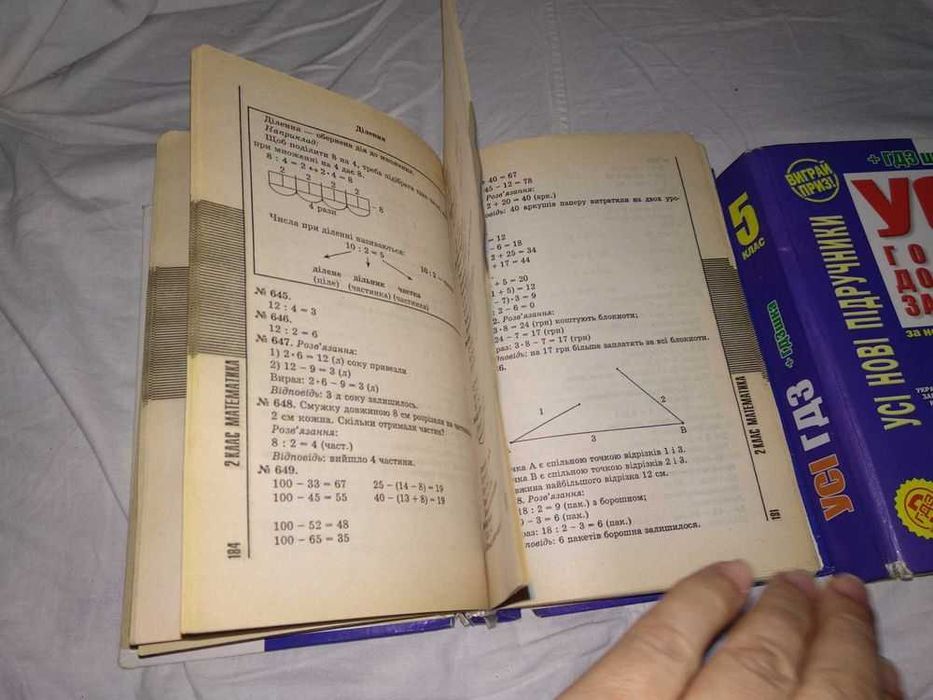 Ділення
Ділення — обернена дія до множення.
Наприклад:
Щоб поділити 8 на 4, треба підібрати таке
при множенні на 4 дає 8.
8 : 4 = 2 ↔ 2 · 4 = 8
2 2 2 2
8
4 рази
Числа при діленні називаються:
10 : 2 = 5
ділене дільник частка
(ціле) (частинка) (частинка)
№ 645.
12 : 4 = 3
№ 646.
12 : 2 = 6
№ 647. Розв'язання:
1) 2 · 6 = 12 (л) соку привезли
2) 12 – 9 = 3 (л)
Вираз: 2 · 6 – 9 = 3 (л)
Відповідь: 3 л соку залишилось.
№ 648. Смужку довжиною 8 см розрізали на частини
2 см кожна. Скільки отримали частин?
Розв'язання:
8 : 2 = 4 (част.)
Відповідь: вийшло 4 частини.
№ 649.
100 – 33 = 67 25 – (14 – 8) = 19
100 – 45 = 55 40 – (13 + 8) = 19
100 – 52 = 48
100 – 65 = 35
2 КЛАС МАТЕМАТИКА
184
40 = 67
45 – 12 = 78
Розв'язання:
2 + 20 = 40 (арк.)
відь: 40 аркушів паперу витратили на двох уро-
= 12
– 6 = 18
2 + 25 = 34
+ 17 = 44
+ 5 = 20
1 + 5) = 12
– 7) · 3 = 9
: 2 – 6 = 0
2. Розв'язання:
3 · 8 = 24 (грн) коштують блокноти;
24 – 7 = 17 (грн)
раз: 3 · 8 – 7 = 17 (грн)
повідь: на 17 грн більше заплатять за всі блокноти.
6.
1
2
3
B
чка А є спільною точкою відрізків 1 і 3.
чка В є спільною точкою відрізків 2 і 3.
вжина найбільшого відрізка 12 см.
8. Розв'язання:
18 : 2 = 9 (пак.) з борошном;
– 3 = 6 (пак.)
раз: 18 : 2 – 3 = 6 (пак.)
повідь: 6 пакетів борошна залишилося.
2 КЛАС МАТЕМАТИКА
191
5
КЛАС
УСІ ГДЗ
ВИГРАЙ
ПРИЗ!
УСІ НОВІ ПІДРУЧНИКИ
+ ГДЗ
УС
ГО
ДО
ЗА